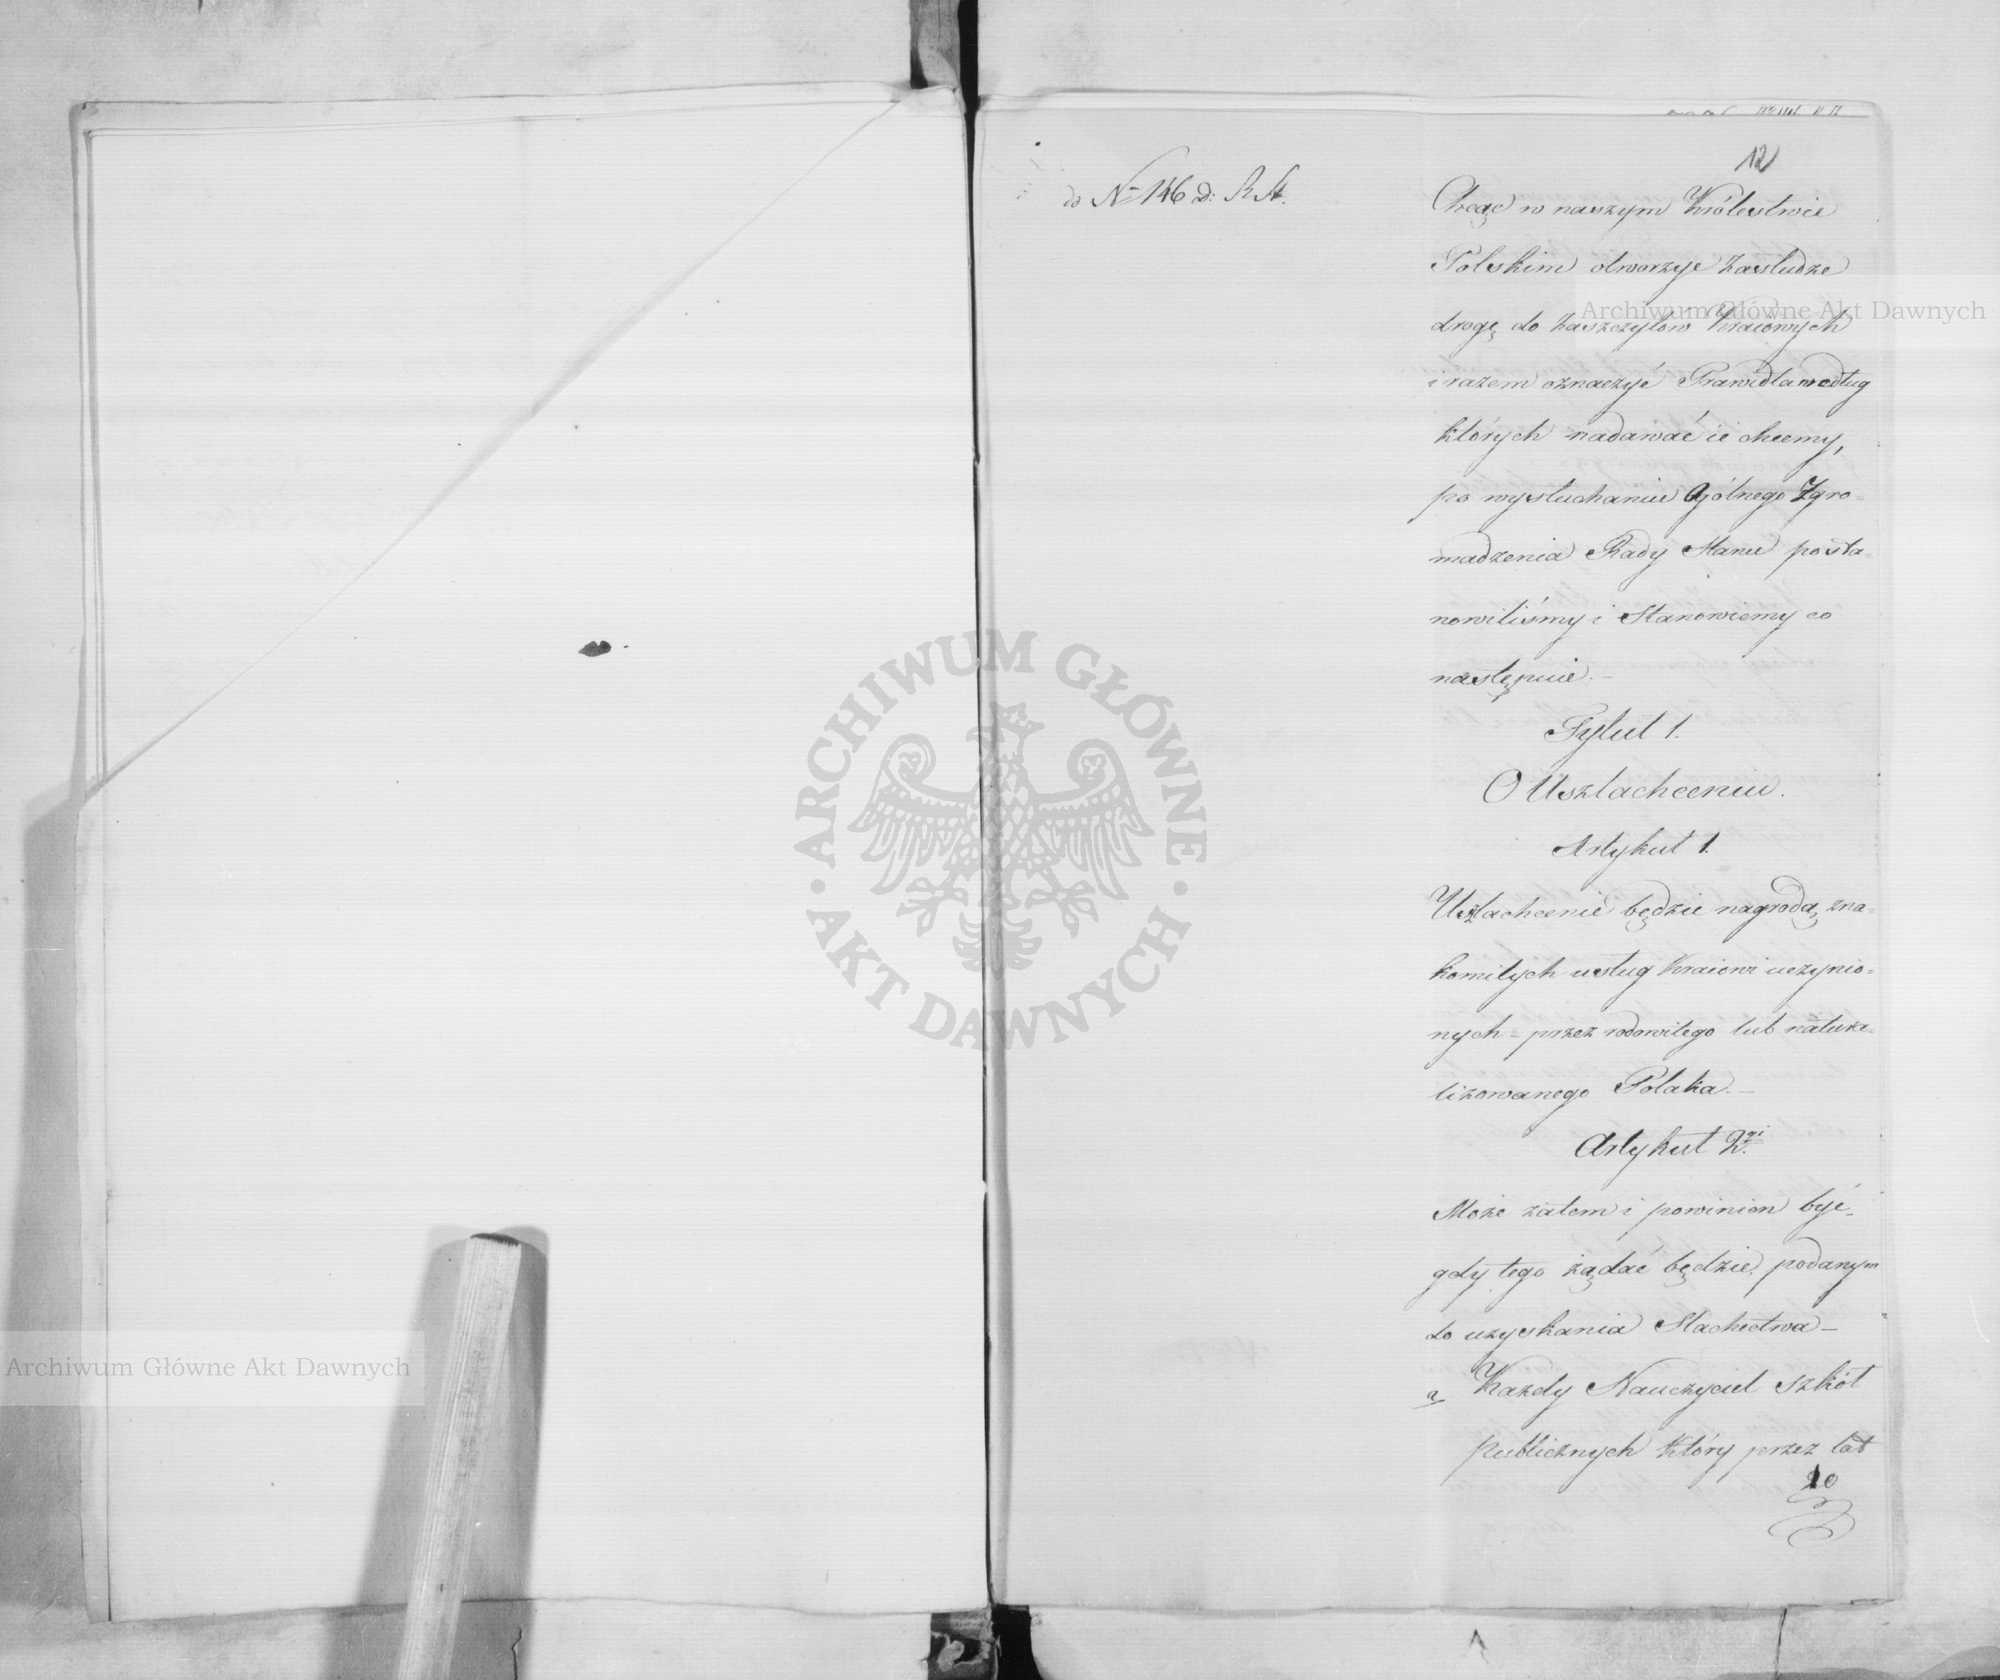 12
do N 146 d: R St.
Chcąc w naszym Królestwie
Polskim otworzyć zasłudze
drogę do zaszczytów Kraiowych
i razem oznaczyć Prawidła według
których nadawać ie chcemy,
po wysłuchaniu Ogólnego Zgro=
madzenia Rady Stanu posta=
nowiliśmy i Stanowiemy co
następuie.—
Tytuł 1.
O Uszlachceniu.
Artykuł 1.
Uszlachcenie będzie nagrodą zna=
komitych usług Kraiowi uczynio=
nych – przez rodowitego lub natura=
lizowanego Polaka.—
Artykuł 2gi
Może zatem i powinien być
gdy tego żądać będzie, podanym
do uzyskania Slachectwa—
a, Każdy Nauczyciel szkół
publicznych który przez lat
10
ARCHIWUM GŁÓWNE
AKT DAWNYCH
Archiwum Główne Akt Dawnych
Archiwum Główne Akt Dawnych